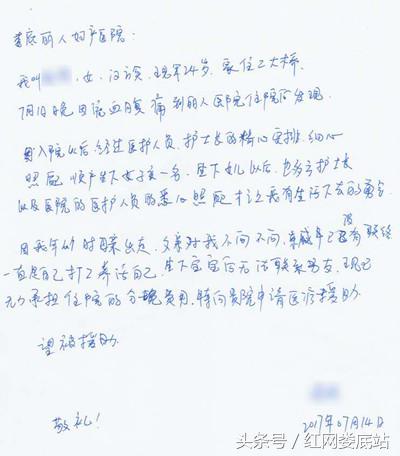 娄底丽人妇产医院：
我叫，女，汉族，现年24岁，家住二大桥，
7月1晚因腹痛到丽人医院住院后发现
自入院以后，经过医护人员、护士长的精心安排，细心
照顾，顺产生下女子一名，生下女儿以后，也多亏护士长
以及医院的医护人员的悉心照顾，才让我有生活下去的勇气
因我年幼时母亲出走，父亲对我不闻不问，有联络
一直是自己打工养活自己，生下宝宝后无法联系男友，现已
无力承担住院的分娩费用，特向贵院申请医疗援助。
望被援助
敬礼！
2017年07月14日
头条号 / 红网娄底站